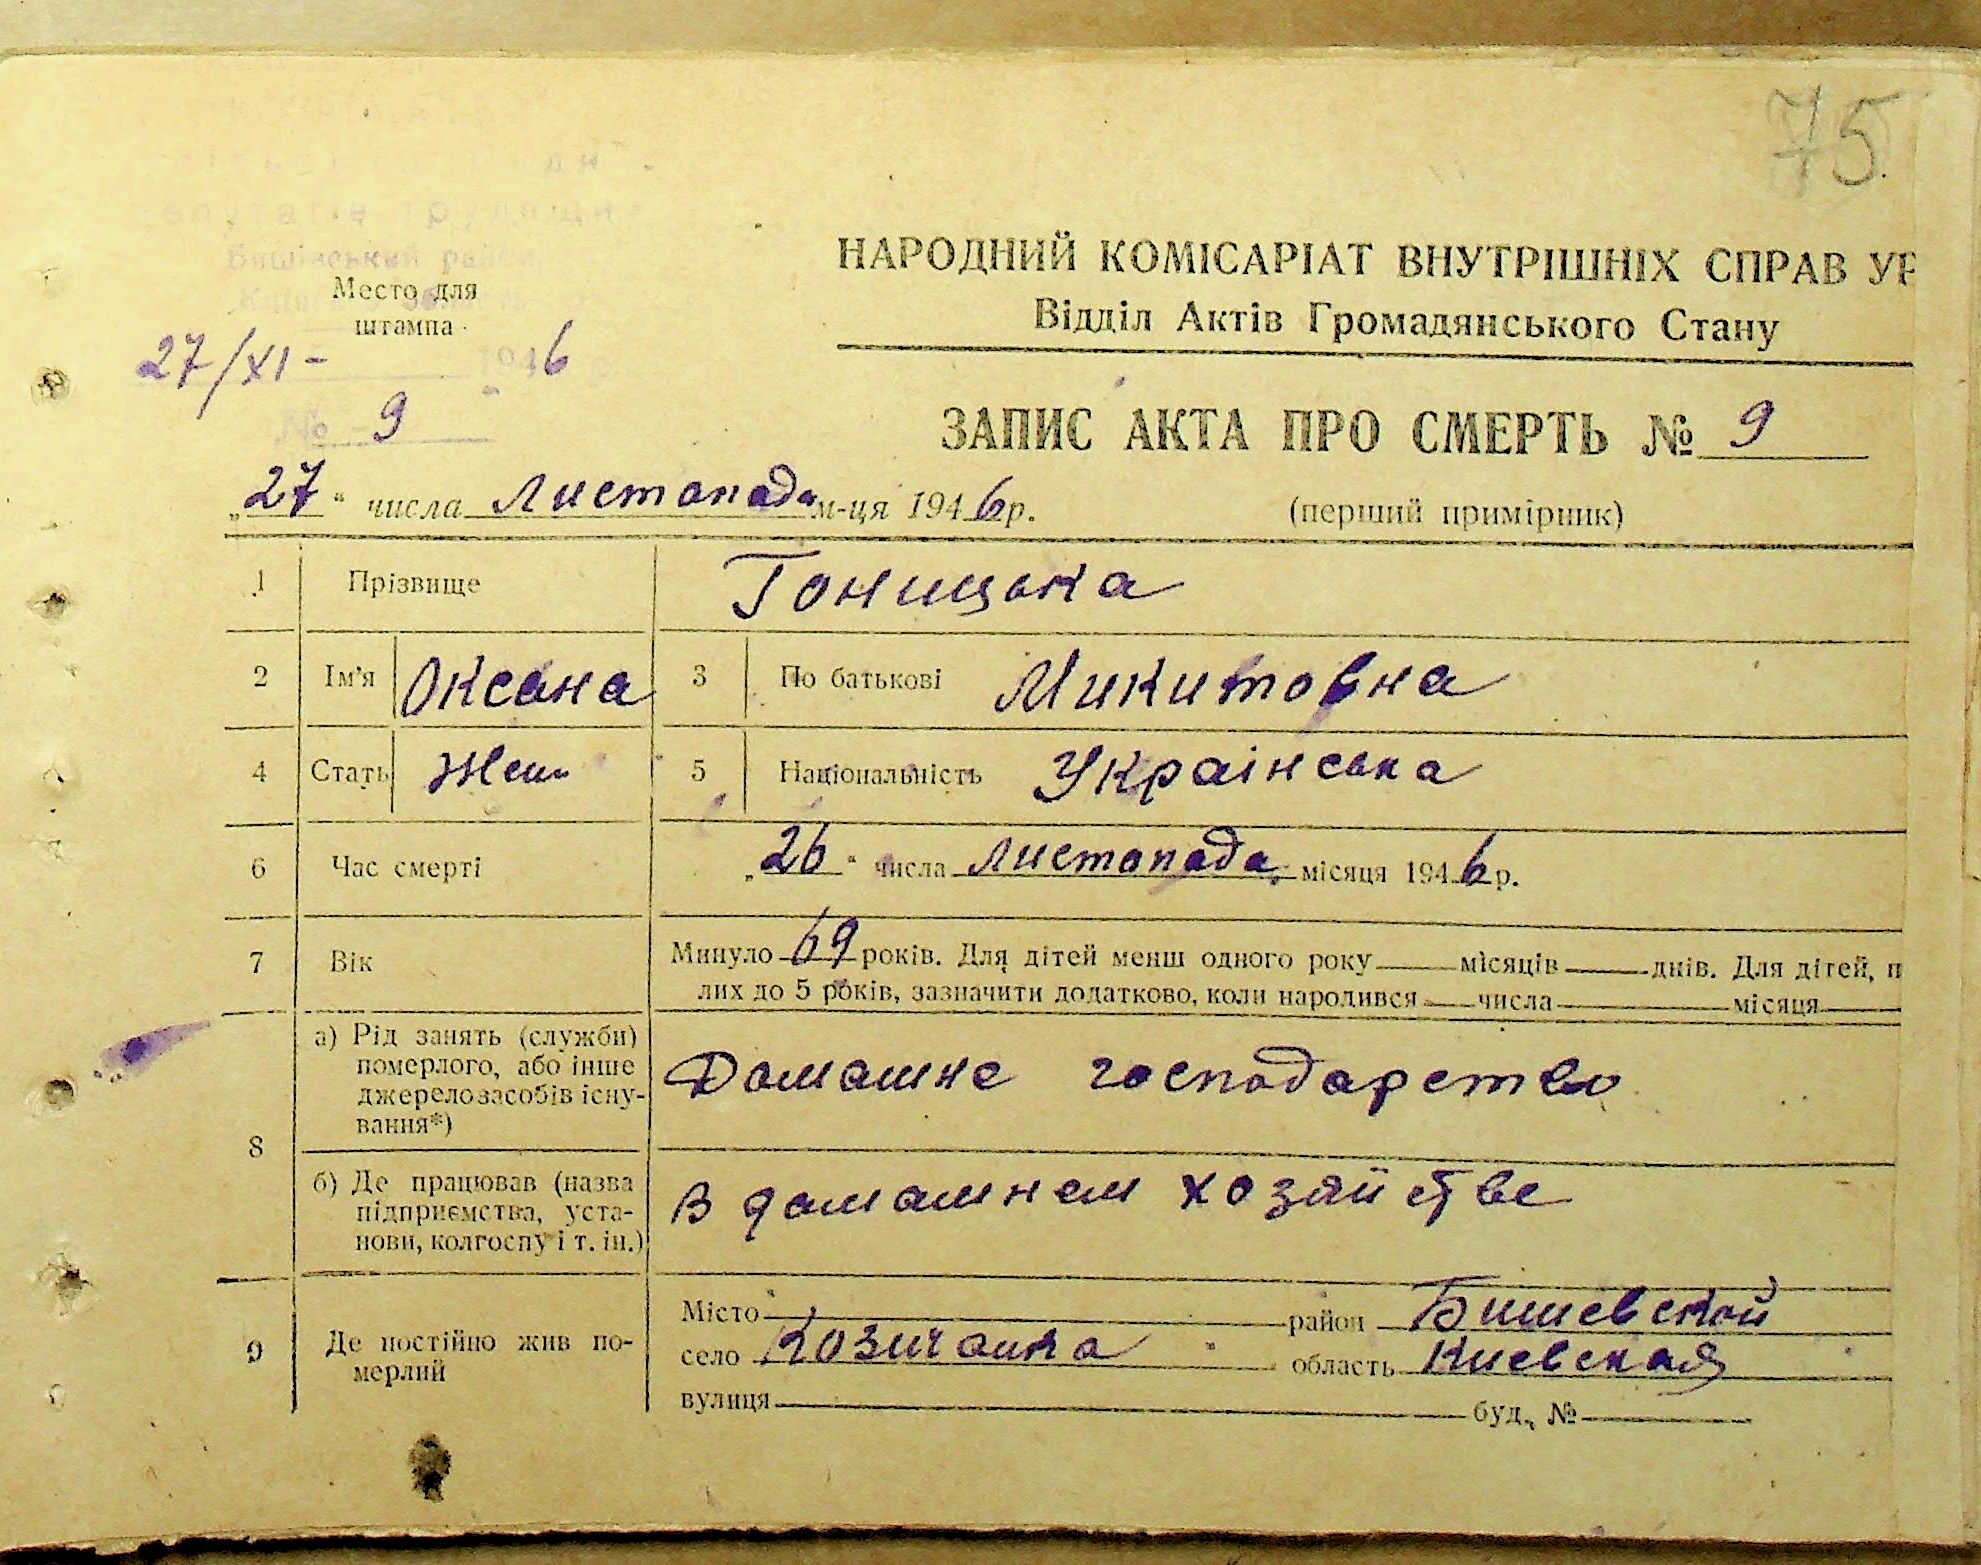 75
НАРОДНИЙ КОМІСАРІАТ ВНУТРІШНІХ СПРАВ УР
Відділ Актів Громадянського Стану
депутатів трудящих
Бишівський район
Место для
штампа
27/XI - 1946
№ 9
ЗАПИС АКТА ПРО СМЕРТЬ № 9
„27“ числа Листопада м-ця 1946 р.
(перший примірник)
1 Прізвище Гоницька
2 Ім'я Оксана 3 По батькові Микитовна
4 Стать Жен 5 Національність Українська
6 Час смерті „26“ числа листопада місяця 1946 р.
7 Вік Минуло 69 років. Для дітей менш одного року місяців днів. Для дітей, п
лих до 5 років, зазначити додатково, коли народився числа місяця
8 а) Рід занять (служби)
померлого, або інше
джерело засобів існу-
вання*)
Домашнє господарство
б) Де працював (назва
підприємства, уста-
нови, колгоспу і т. ін.)
В домашнем хозяйстве
9 Де постійно жив по-
мерлий
Місто район Бишевской
село Козичанка область Киевская
вулиця буд. №